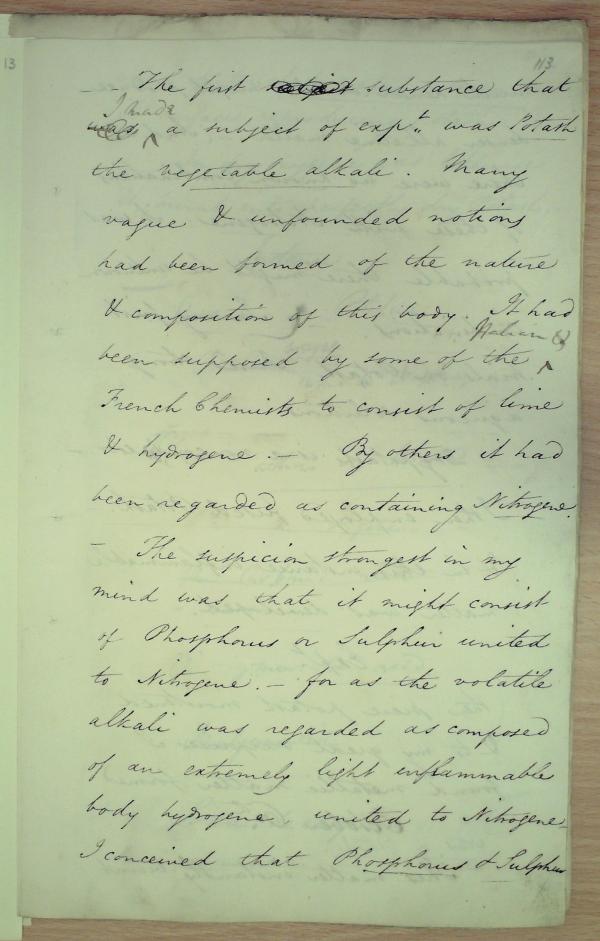 13
113
— The first subject substance that
I made
was ^ a subject of expt. was Potash
the vegetable alkali. Many
vague & unfounded notions
had been formed of the nature
& composition of this body. It had
Italian &
been supposed by some of the ^
French Chemists to consist of lime
& hydrogene. — By others it had
been regarded as containing Nitrogene.
— The suspicion strongest in my
mind was that it might consist
of Phosphorus or Sulphur united
to Nitrogene. — for as the volatile
alkali was regarded as composed
of an extremely light inflammable
body hydrogene united to Nitrogene
I conceived that Phosphorus & Sulphur